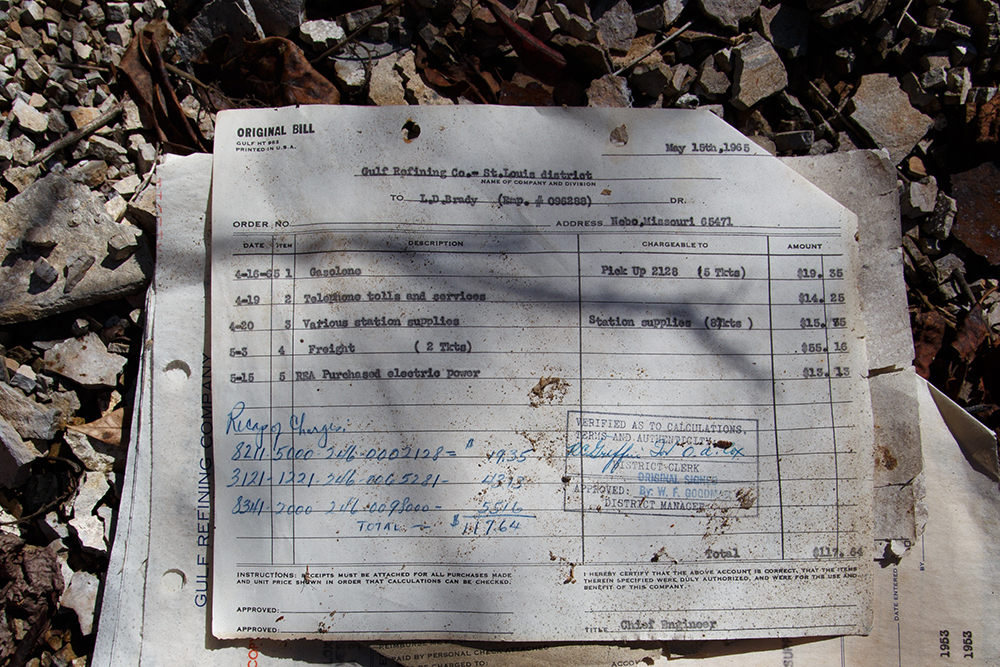 ORIGINAL BILL
GULF HT 983
PRINTED IN U.S.A.
May 15th,1965
Gulf Refining Co.- St.Louis district
NAME OF COMPANY AND DIVISION
TO L.D.Brady (Emp. # 096288) DR.
ORDER NO. ADDRESS Nebo,Missouri 65471
DATE ITEM DESCRIPTION CHARGEABLE TO AMOUNT
4-16-65 1 Gasolene Pick Up 2128 (5 Tkts) $19. 35
4-19 2 Telephone tolls and services $14. 25
4-20 3 Various station supplies Station supplies (8Tkts ) $15. 75
5-3 4 Freight ( 2 Tkts) $55. 16
5-15 5 REA Purchased electric power $13. 13
Recap of Charges.
8211-5000-246-0002128= $ 19.35
3121-1221-246-0065281- 43.13
8341-2000-246-0098000- 55.16
TOTAL - $ 117.64
VERIFIED AS TO CALCULATIONS,
TERMS AND AUTHENTICITY
DISTRICT CLERK
ORIGINAL SIGNED
APPROVED: By: W. F. GOODMAN
DISTRICT MANAGER
Total $117. 64
INSTRUCTIONS: RECEIPTS MUST BE ATTACHED FOR ALL PURCHASES MADE
AND UNIT PRICE SHOWN IN ORDER THAT CALCULATIONS CAN BE CHECKED.
I HEREBY CERTIFY THAT THE ABOVE ACCOUNT IS CORRECT, THAT THE ITEMS
THEREIN SPECIFIED WERE DULY AUTHORIZED, AND WERE FOR THE USE AND
BENEFIT OF THIS COMPANY.
APPROVED:
APPROVED:
TITLE Chief Engineer
GULF REFINING COMPANY
PAID BY PERSONAL CHECK ATTACHED
DATE ENTERED
BY
1953
1953